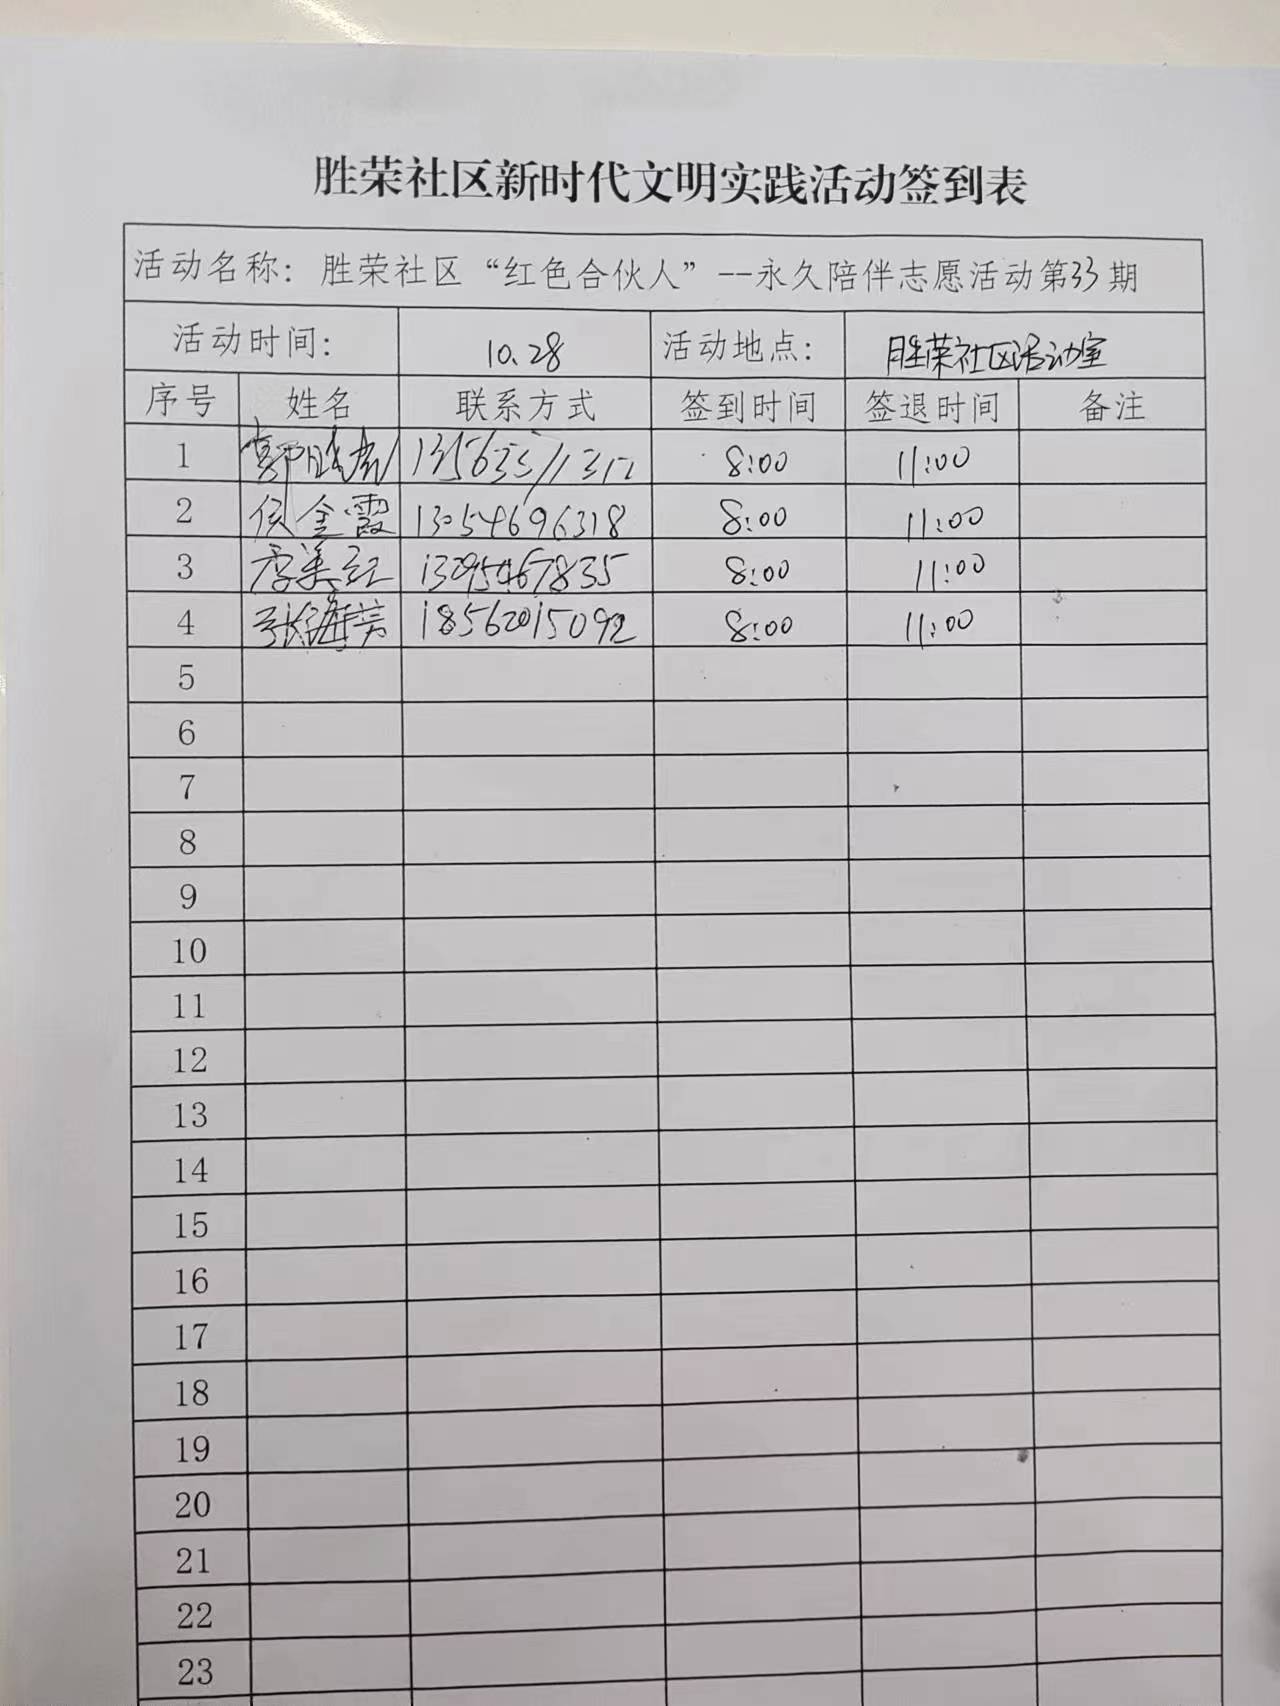 胜荣社区新时代文明实践活动签到表
活动名称：胜荣社区“红色合伙人”--永久陪伴志愿活动第33期
活动时间： 10.28 活动地点： 胜荣社区活动室
序号 姓名 联系方式 签到时间 签退时间 备注
1 8:00 11:00
2 侯金霞 13054696318 8:00 11:00
3 李美红 13295467835 8:00 11:00
4 张海英 18562015092 8:00 11:00
5
6
7
8
9
10
11
12
13
14
15
16
17
18
19
20
21
22
23